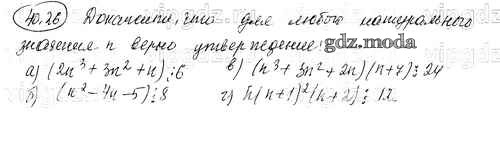 40.26 Докажите, что для любого натурального
значения n верно утверждение:
gdz.moda
а) (2n³ + 3n² + n) ⋮ 6 в) (n³ + 3n² + 2n)(n+7) ⋮ 24
б) (n² - 4n - 5) ⋮ 8 г) n(n+1)²(n+2) ⋮ 12